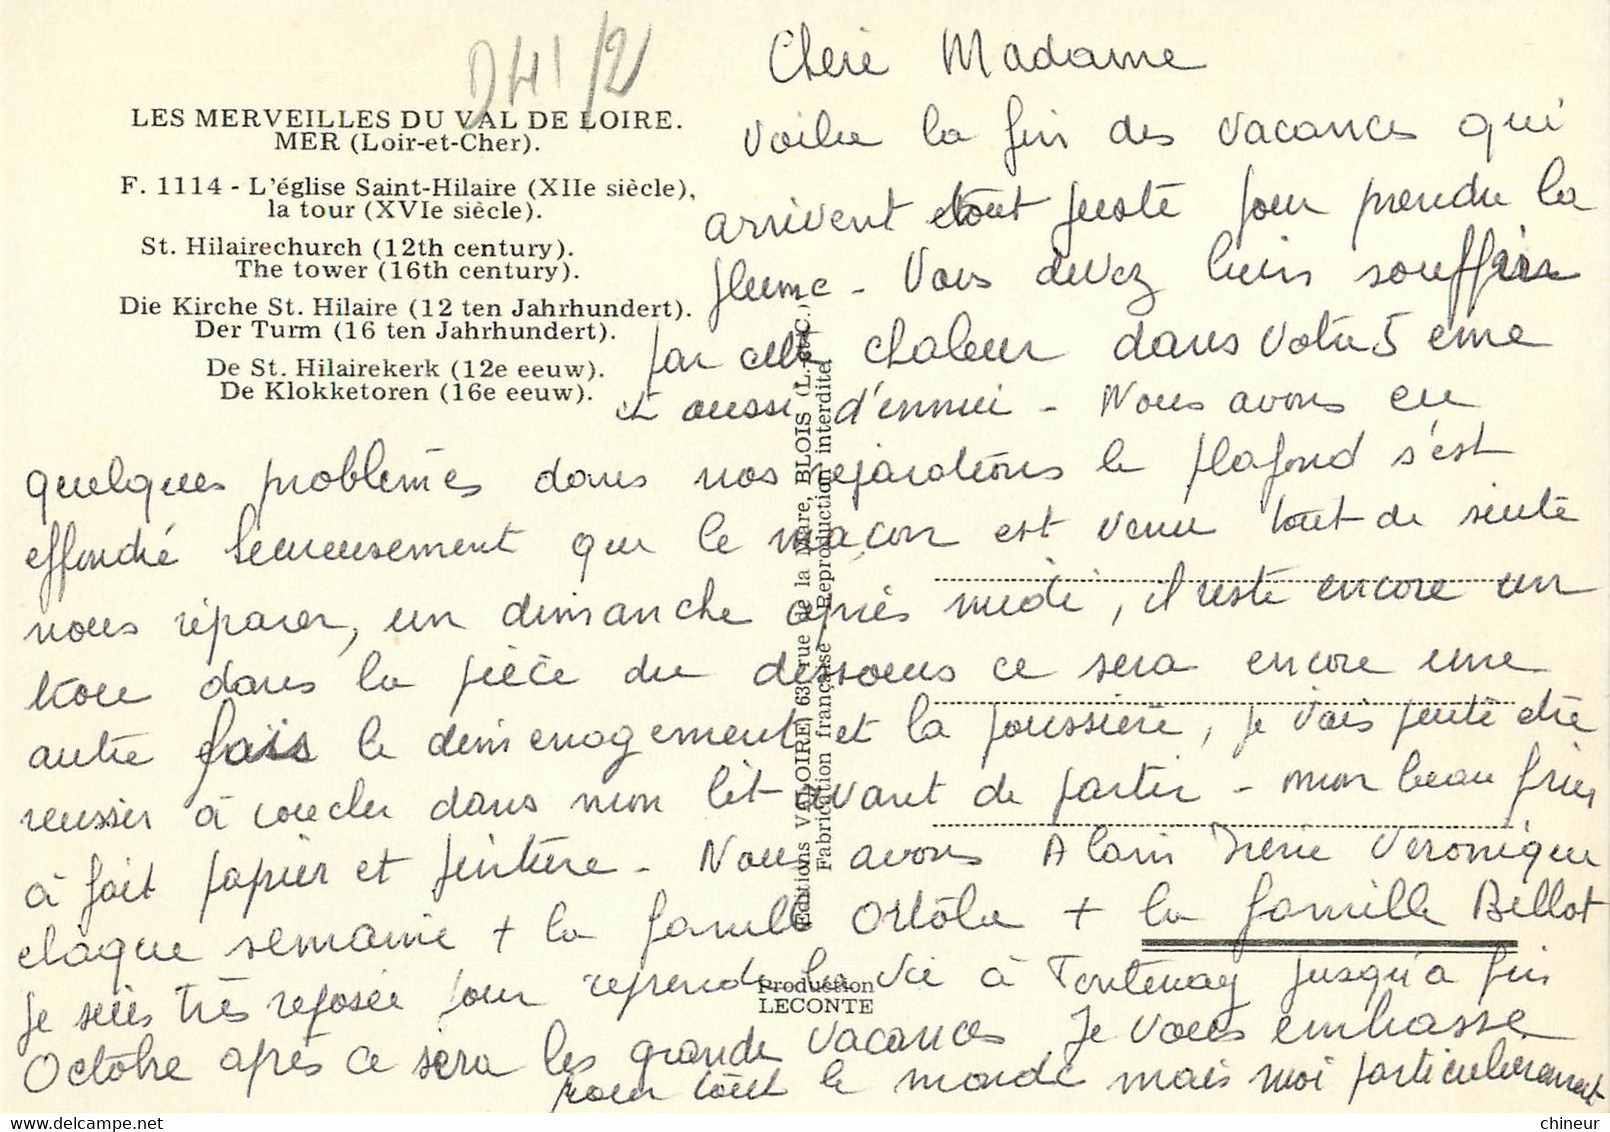 LES MERVEILLES DU VAL DE LOIRE.
MER (Loir-et-Cher).
F. 1114 - L'église Saint-Hilaire (XIIe siècle),
la tour (XVIe siècle).
St. Hilairechurch (12th century).
The tower (16th century).
Die Kirche St. Hilaire (12 ten Jahrhundert).
Der Turm (16 ten Jahrhundert).
De St. Hilairekerk (12e eeuw).
De Klokketoren (16e eeuw).
Editions VALOIRE, 63, rue de la Mare, BLOIS (L.-et-C.)
Fabrication française - Reproduction interdite.
Production
LECONTE
Chère Madame
Voila la fin des vacances qui
arrivent tout juste pour prendre la
plume - Vous devez bien souffrir
par cette chaleur dans votre 5 eme
et aussi d'ennui - Nous avons eu
quelques problèmes dans nos reparations le plafond s'est
effondré heureusement que le maçon est venu tout de suite
nous réparer, un dimanche après midi, il reste encore un
trou dans la pièce du dessous ce sera encore une
autre fois le demenagement et la poussière, je vais peut être
reussir à coucher dans mon lit avant de partir - mon beau frère
à fait papier et peinture - Nous avons Alain Irène Veronique
chaque semaine + la famille Ortola + la famille Billot
je suis très reposée pour reprendre la vie à Fontenay jusqu'à fin
Octobre après ce sera les grande vacances Je vous embrasse
pour tout le monde mais moi particulièrement
chineur